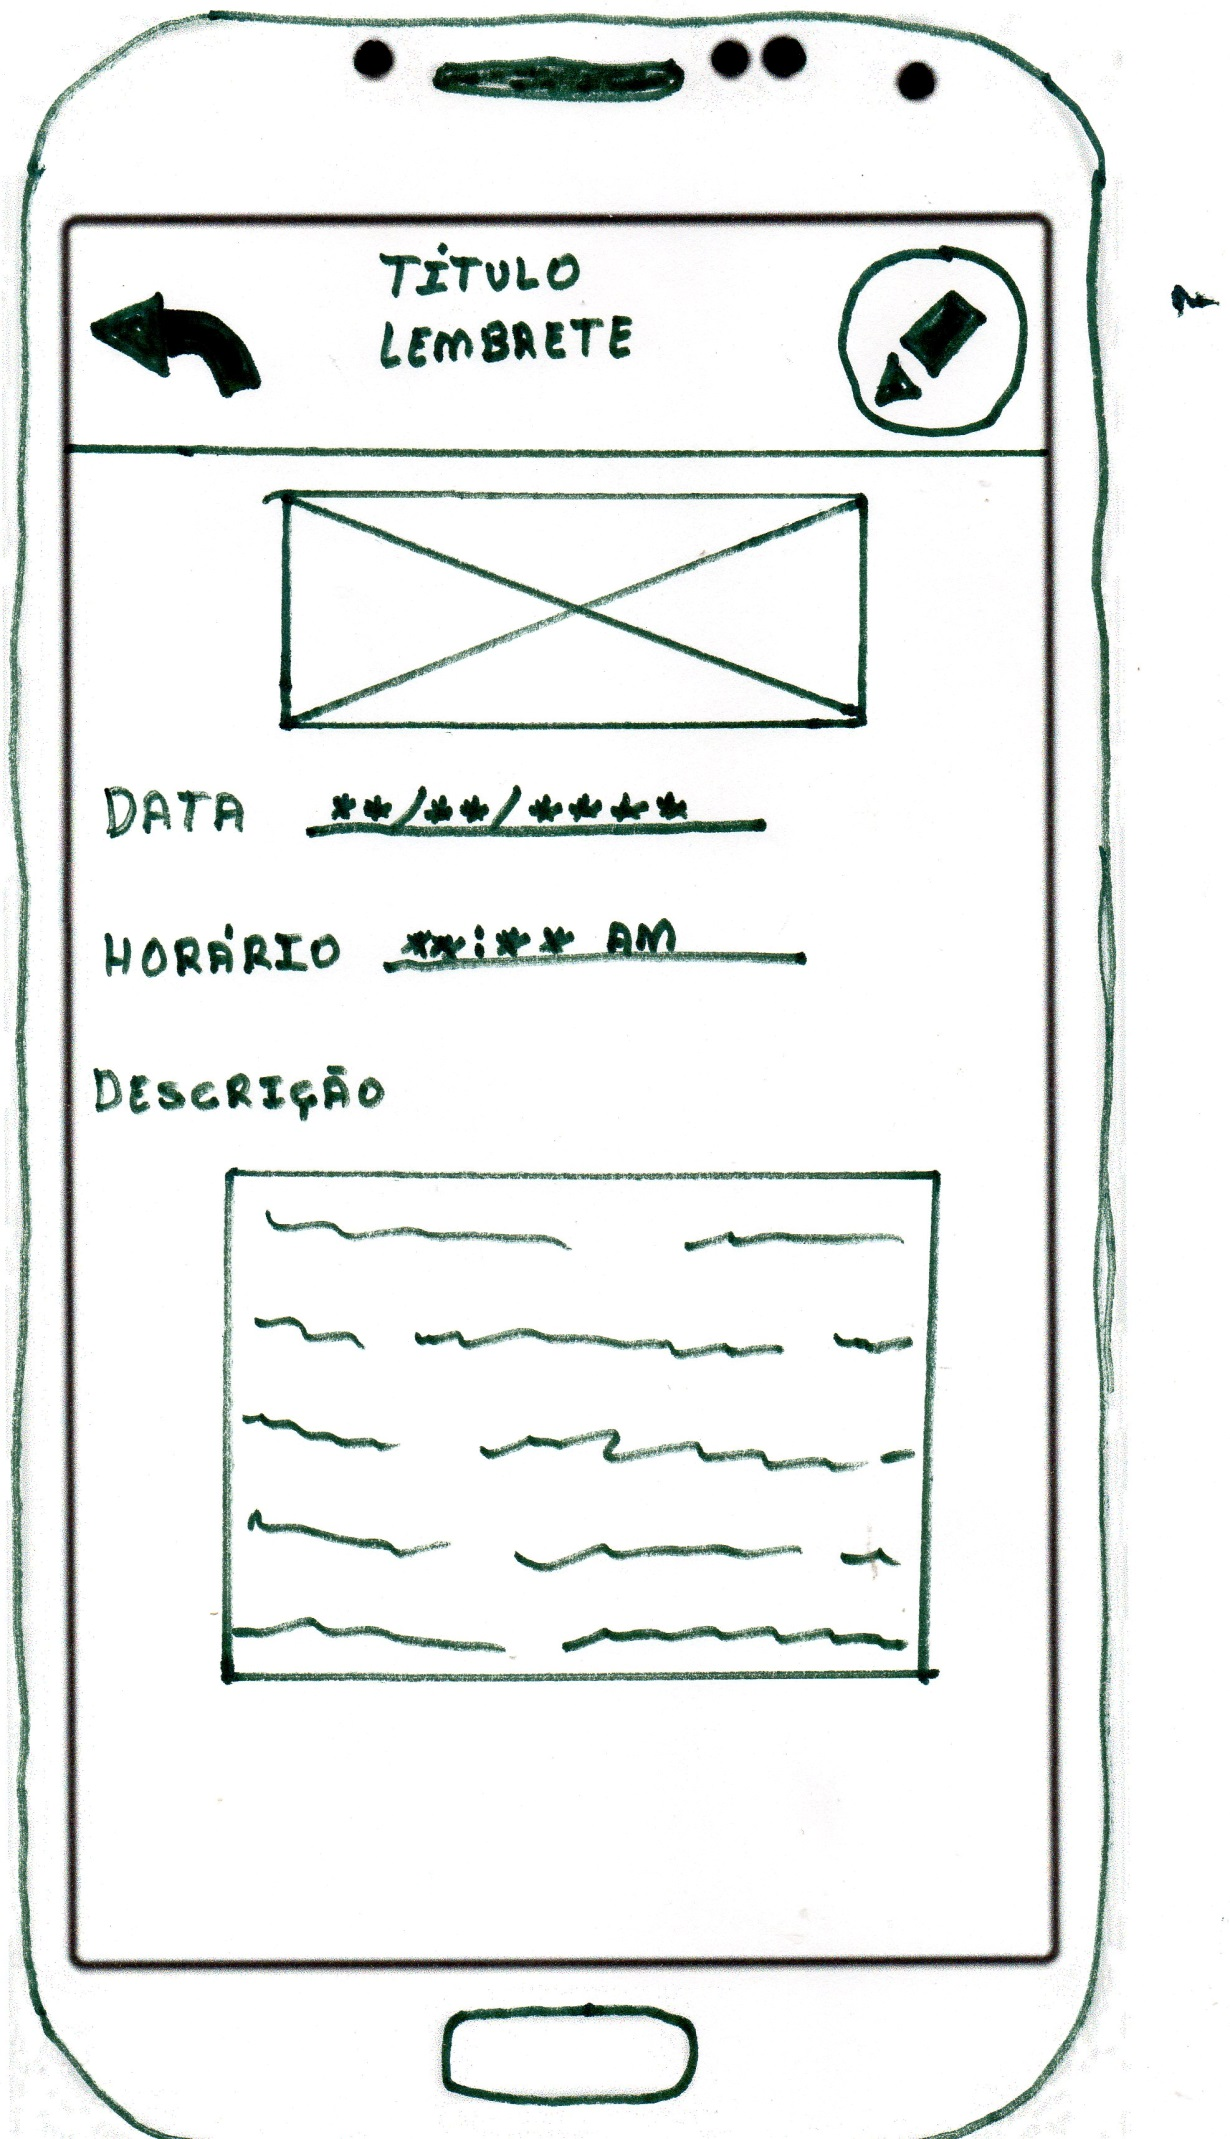 TÍTULO
LEMBRETE
DATA **/**/****
HORÁRIO **:** AM
DESCRIÇÃO